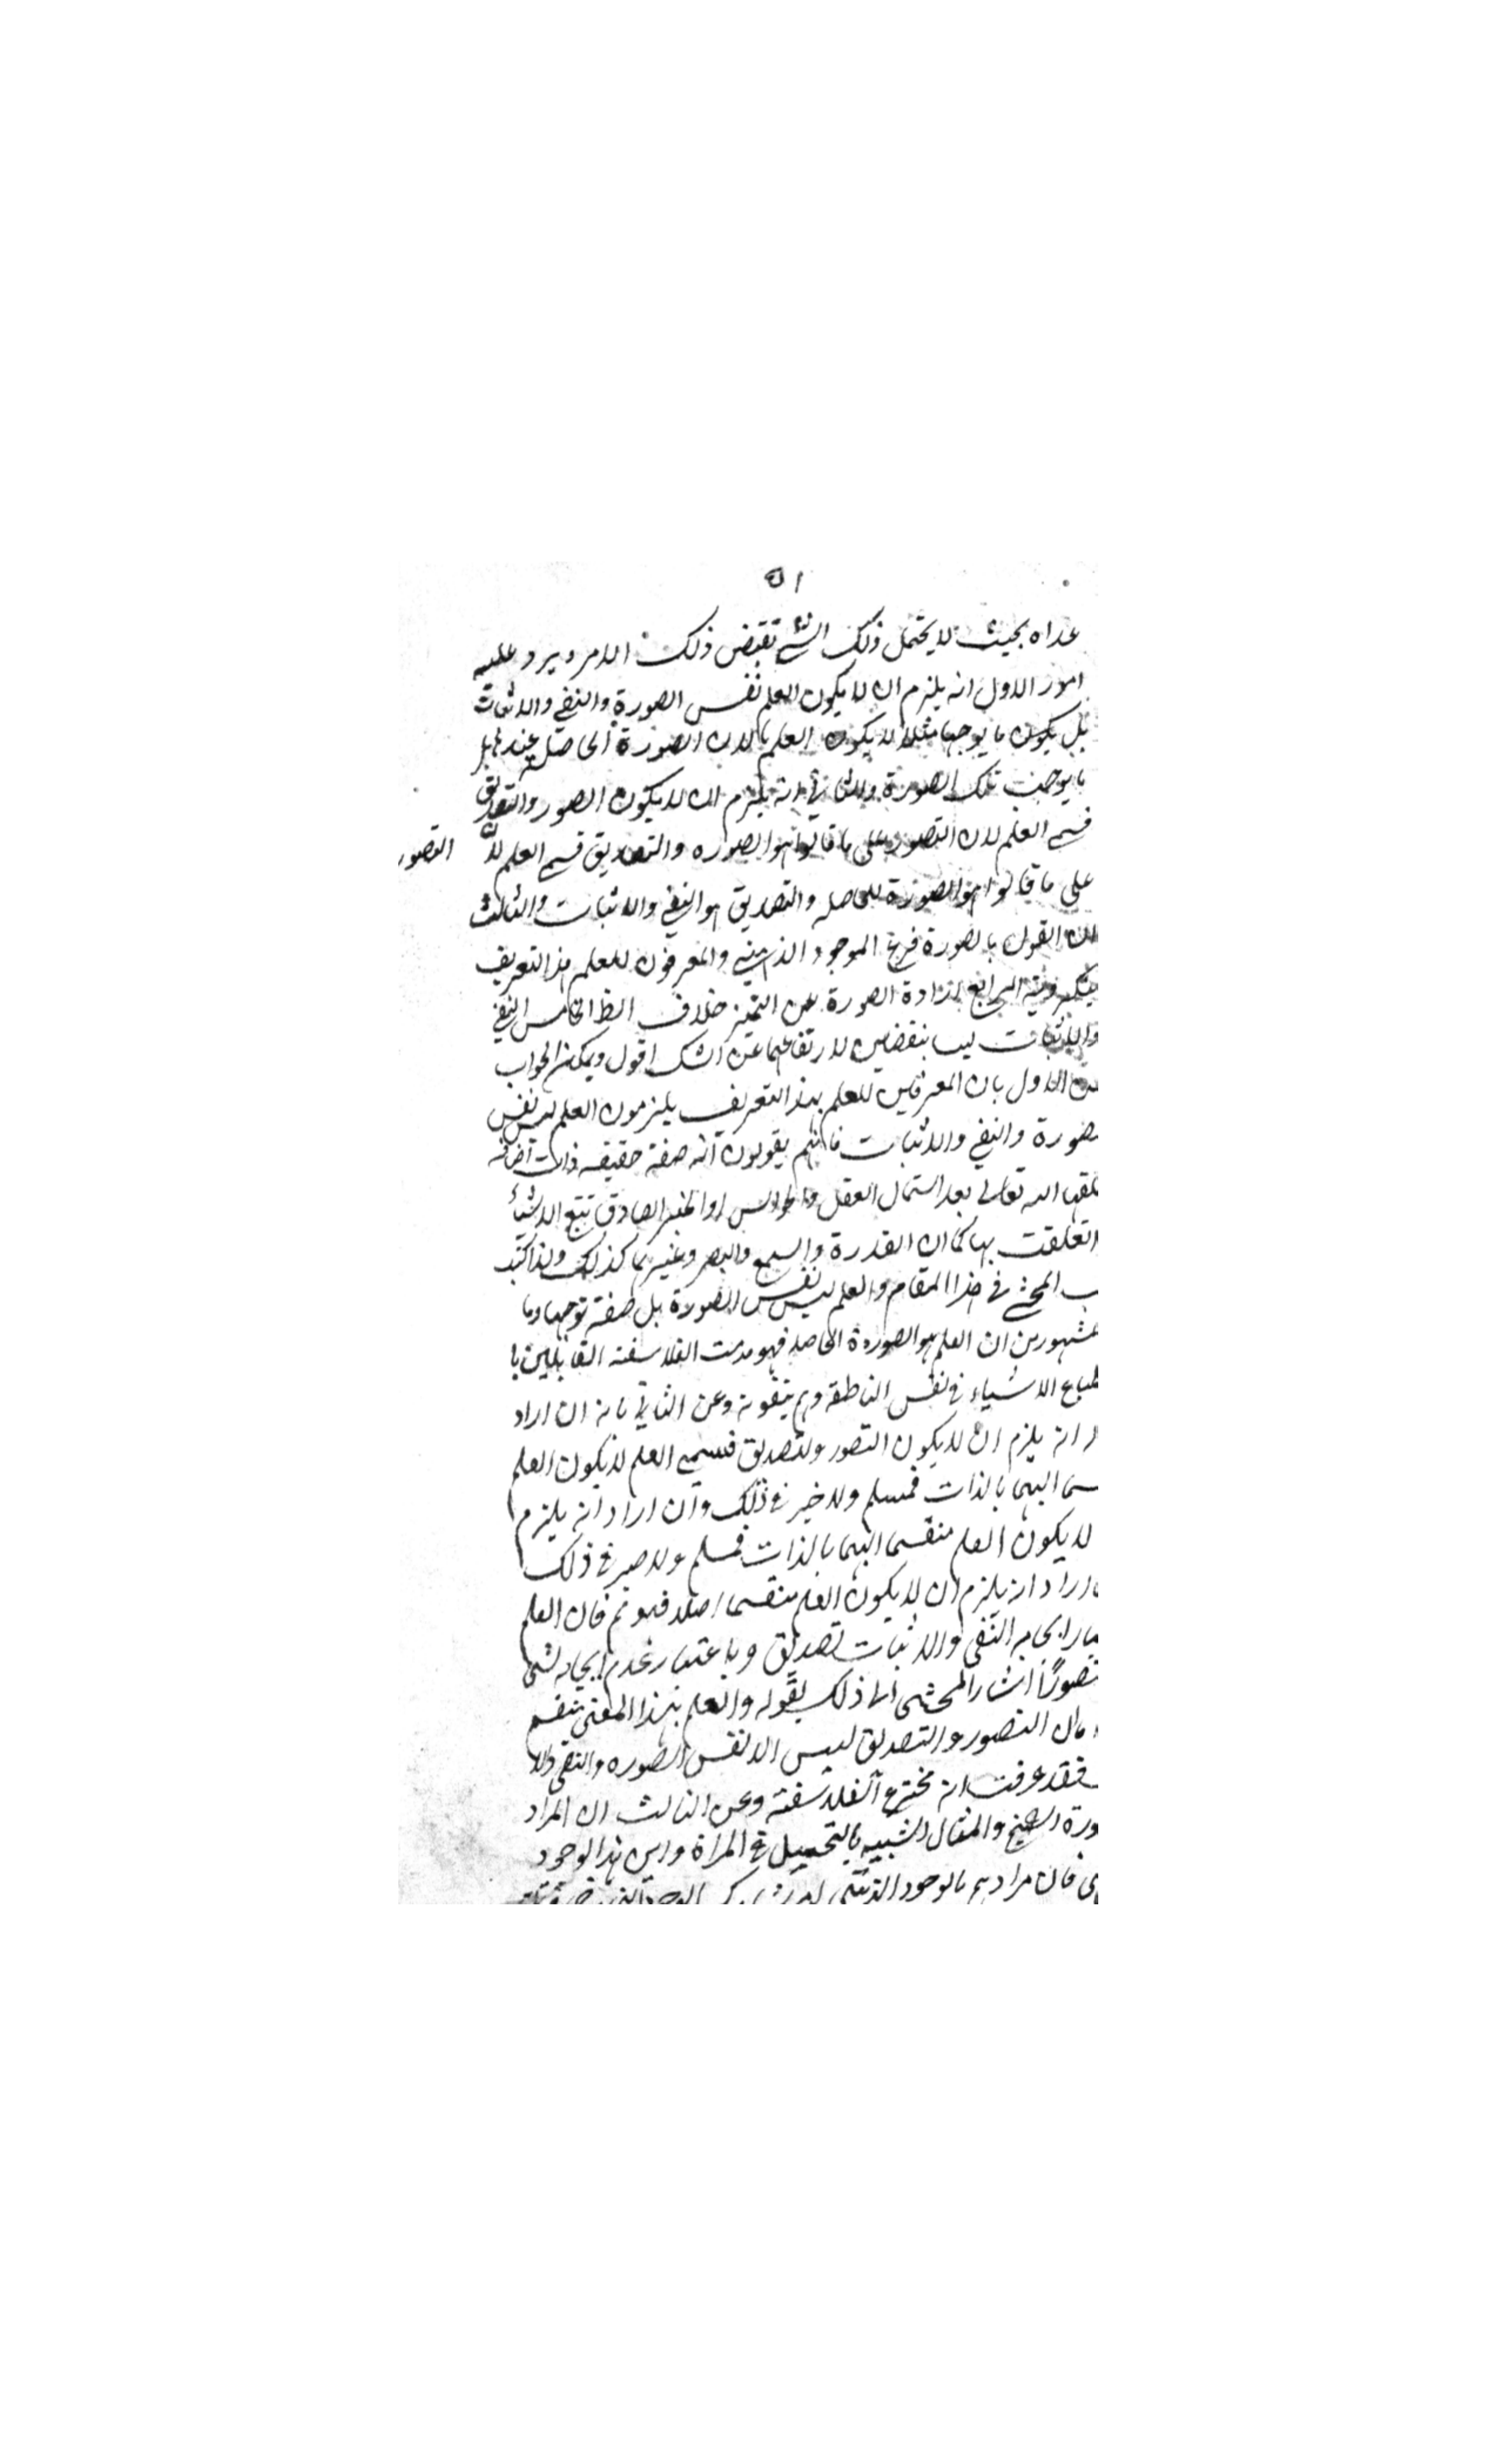 ٥١
عداه بحيث لا يحتمل ذلك الشئ نقيض ذلك الامر ويرد عليه
امور الاول انه يلزم ان لا يكون العلم نفس الصورة والنفي والاثبات
بل يكون ما يوجبها مثلا لا يكون العلم بالان الصورة الحاصلة عندها بل
ما يوجب تلك الصورة والثاني انه يلزم ان لا يكون الصور والتصديق
قسمي العلم لان التصور على ما قالوا هو الصوره والتصديق قسمي العلم لان التصور
على ما قالوا هو الصورة الحاصله والتصديق هو النفي والاثبات والثالث
ان القول بالصورة فرع الموجود الذهني والمعرفون للعلم بهذا التعريف
ينكرونه الرابع ارادة الصورة عن التميز خلاف الظ الخامس النفي
والاثبات ليسا بنقضين لارتفاعهما عن الشك اقول ويمكن الجواب
عن الاول بان المعرفين للعلم بهذا التعريف يلتزمون العلم ليس نفس
صورة والنفي والاثبات فانهم يقولون انه صفة حقيقه ذات اضافه
يخلقها الله تعالى بعد استعمال العقل والحواس او الخبر الصادق تتبع الاشياء
تعلقت بها كما ان القدرة والسمع والبصر وغيرهما كذلك ولذا كتب
المحشي في هذا المقام والعلم ليس نفس الصورة بل صفة توجبها وما
مشهور من ان العلم هو الصورة الحاصله فهو مذهب الفلاسفه القائلين با
نطباع الاشياء في نفس الناطقه وهم ينفونه وعن الثاني بانه ان اراد
انه يلزم ان لا يكون التصور والتصديق قسمي العلم لا يكون العلم
اليهما بالذات فمسلم ولا خير في ذلك وان اراد انه يلزم
لا يكون العلم منقسما اليهما بالذات فمسلم ولا ضير في ذلك
اراد انه يلزم ان لا يكون العلم منقسما اصلا فهو مم فان العلم
ايجابه النفي والاثبات تصديق وباعتبار عدم ايجابه لشئ
تصورًا اشار المحشى الى ذلك بقوله والعلم بهذا المعنى ينقسم
مان التصور والتصديق ليس الا نفس الصوره والنفى والا
فقد عرفت انه مخترع الفلاسفة وعن الثالث ان المراد
ورة الشبح والمثال الشبيه بالتخييل في المراة وليس هذا الوجود
فان مرادهم بالوجود الذهني